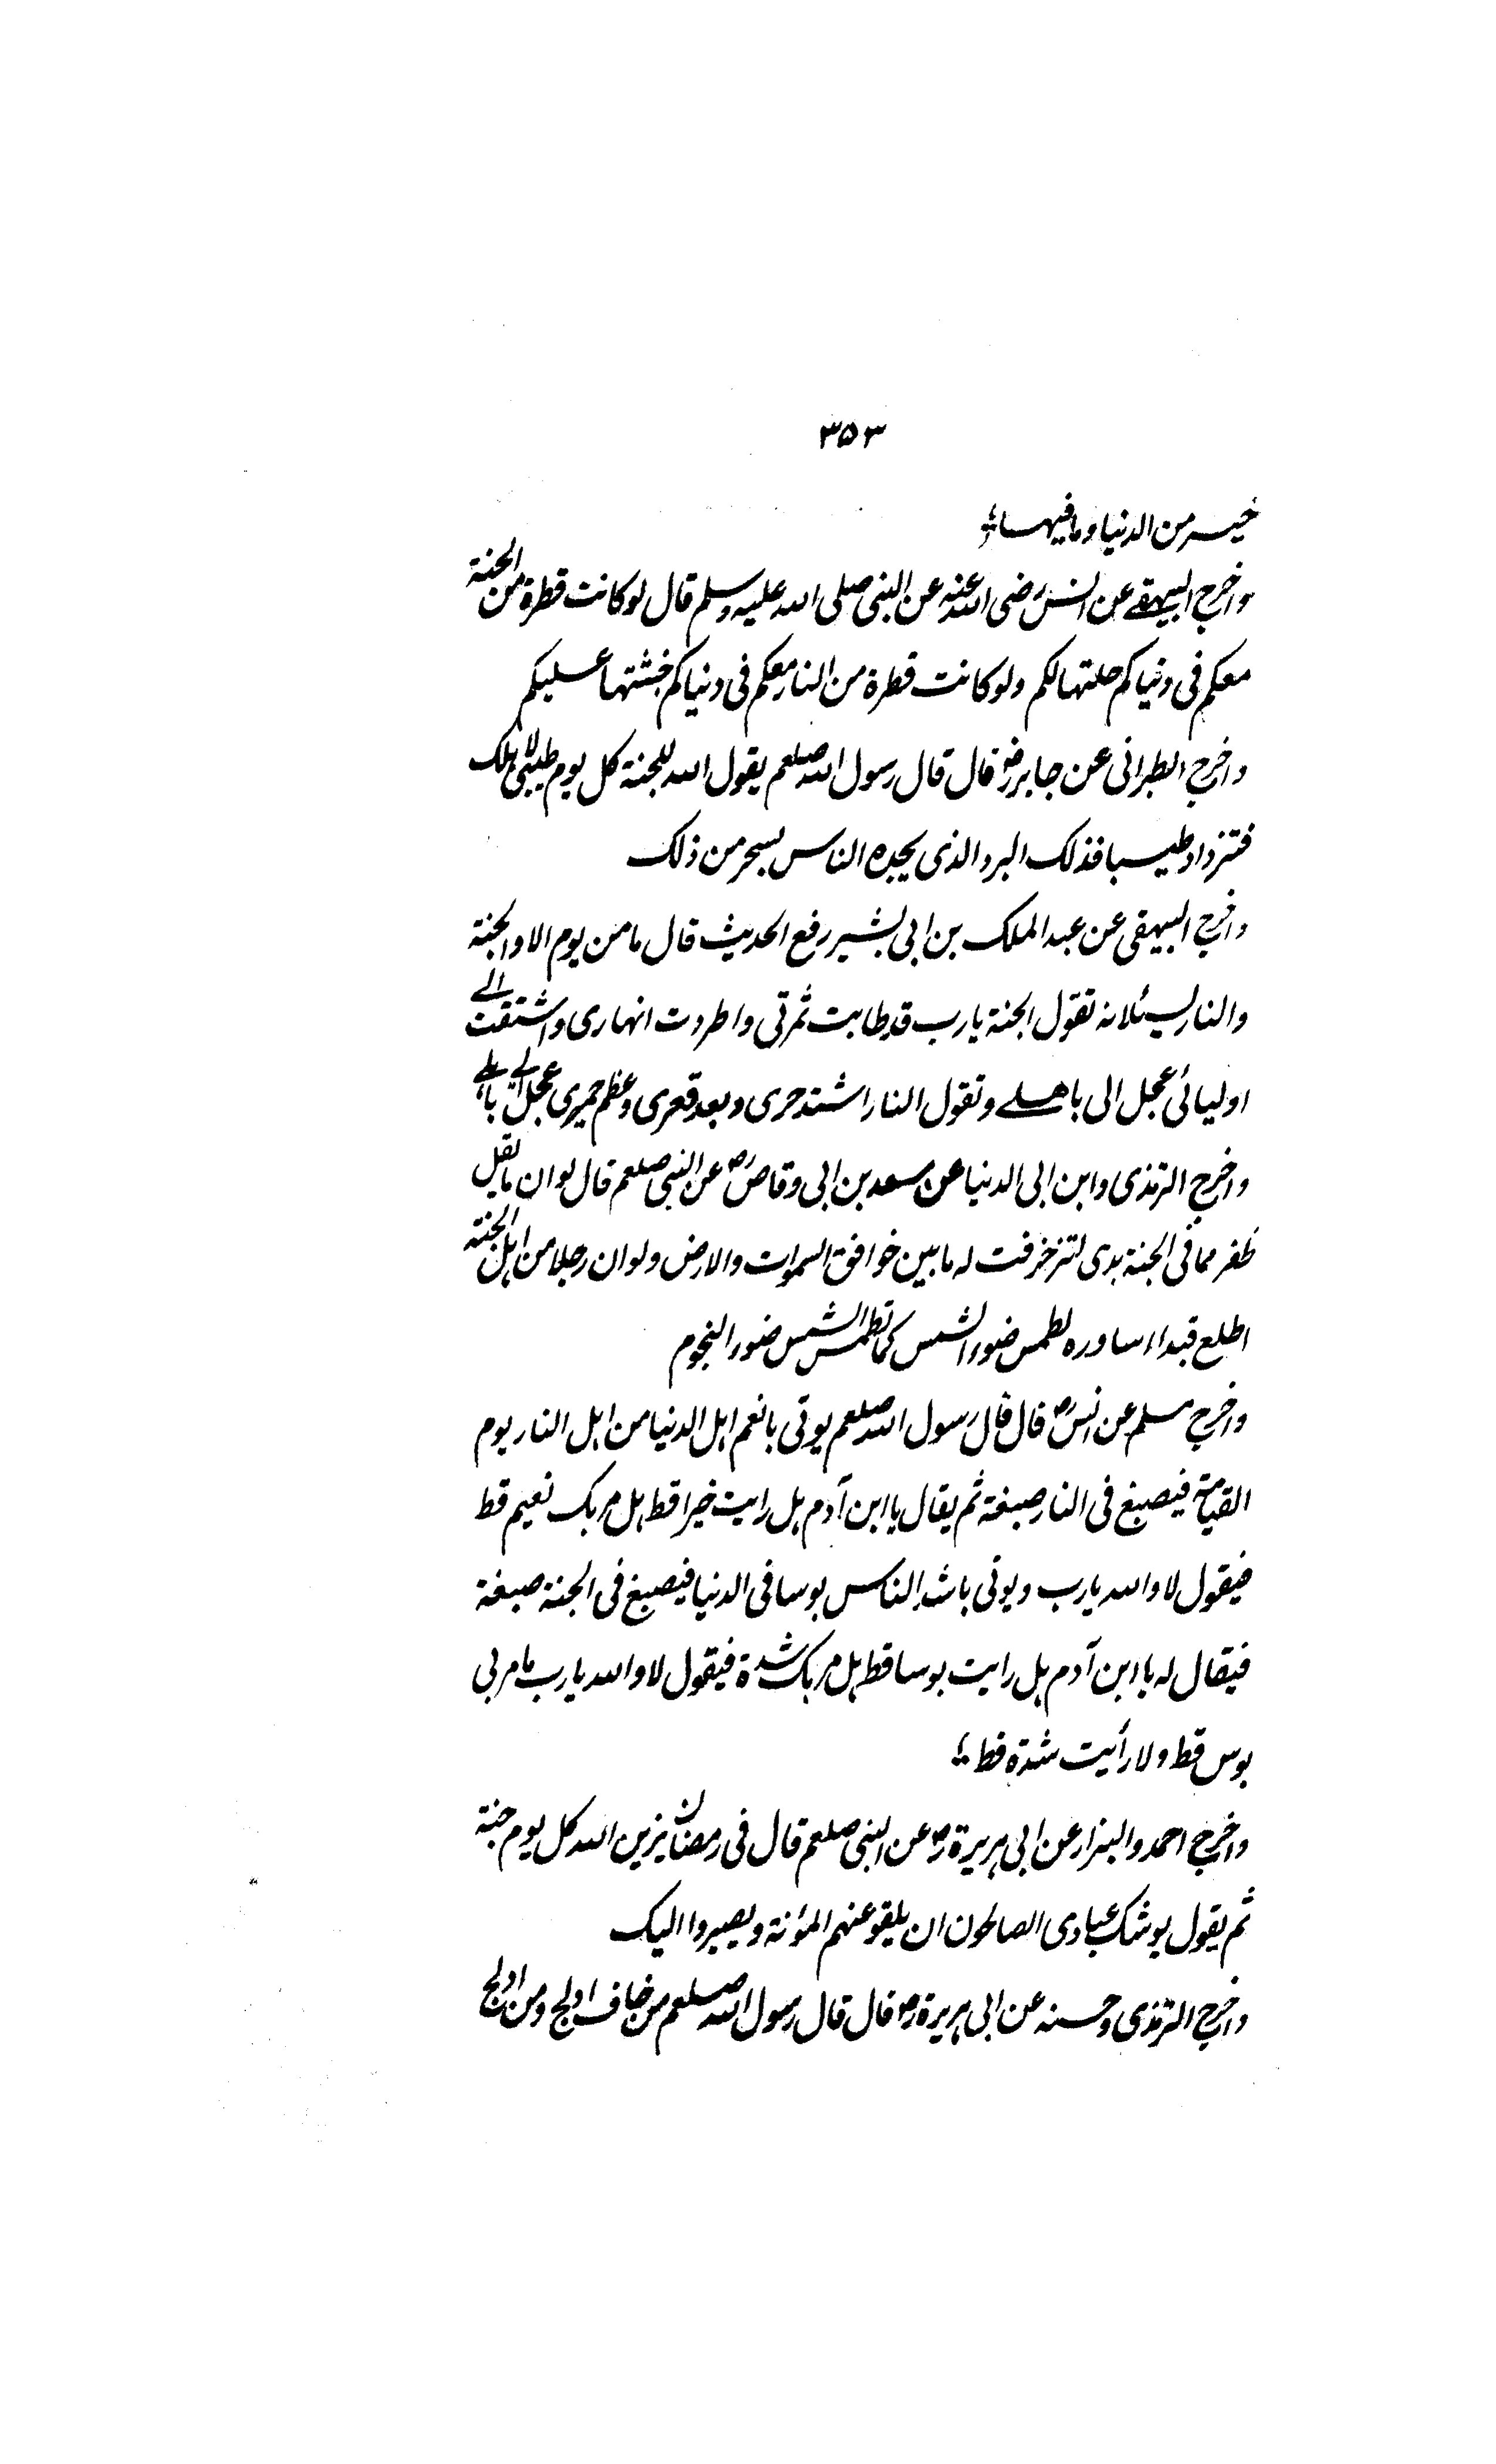 ۳۵۳
خیر من الدنیا وما فیہا
واخرج البیہقے عن انس رضی اللہ عنہ عن النبی صلی اللہ علیہ وسلم قال لو کانت قطرۃ من الجنۃ
معکم فی دنیاکم حلتہا لکم ولو کانت قطرۃ من النار معکم فی دنیاکم خبثتہا علیکم
واخرج الطبرانی عن جابر رض قال قال رسول اللہ صلعم یقول اللہ للجنۃ کل یوم طیبی لاہلک
فتزداد طیبا فذلک البرد الذی یجدہ الناس بسحر من ذلک
واخرج البیہقی عن عبد الملک بن ابی بشیر رفع الحدیث قال ما من یوم الا والجنۃ
والنار یسئلانہ تقول الجنۃ یارب قد طابت ثمرتی واطردت انہاری واشتقت الے
اولیائی عجل الی باہلے وتقول النار اشتد حری وبعد قعری وعظم جمری عجل الے باہلے
واخرج الترمذی وابن ابی الدنیا عن سعد بن ابی وقاص رض عن النبی صلعم قال لو ان ما یقل
ظفر مما فی الجنۃ بدی لتزخرفت لہ ما بین خوافق السموات والارض ولو ان رجلا من اہل الجنۃ
اطلع فبدا اساورہ لطمس ضوء الشمس کما تطمس الشمس ضوء النجوم
واخرج مسلم عن انس رض قال قال رسول اللہ صلعم یوتی بانعم اہل الدنیا من اہل النار یوم
القیامۃ فیصبغ فی النار صبغۃ ثم یقال یا ابن آدم ہل رایت خیرا قط ہل مر بک نعیم قط
فیقول لا واللہ یارب ویوتی باشد الناس بوسا فی الدنیا فیصبغ فی الجنۃ صبغۃ
فیقال لہ یا ابن آدم ہل رایت بوسا قط ہل مر بک شدۃ فیقول لا واللہ یارب ما مر بی
بوس قط ولا رأیت شدۃ قط
واخرج احمد والبزار عن ابی ہریرۃ رض عن النبی صلعم قال فی رمضان یزین اللہ کل یوم جنۃ
ثم یقول یوشک عبادی الصالحون ان یلقو عنہم المؤنۃ ویصیروا الیک
واخرج الترمذی وحسنہ عن ابی ہریرۃ رض قال قال رسول اللہ صلعم من خاف ادلج ومن ادلج